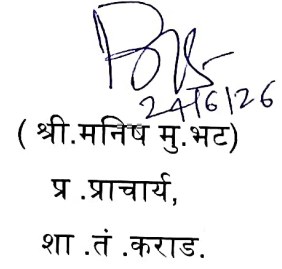 24/6/26
( श्री.मनिष मु.भट)
प्र .प्राचार्य,
शा .तं .कराड.